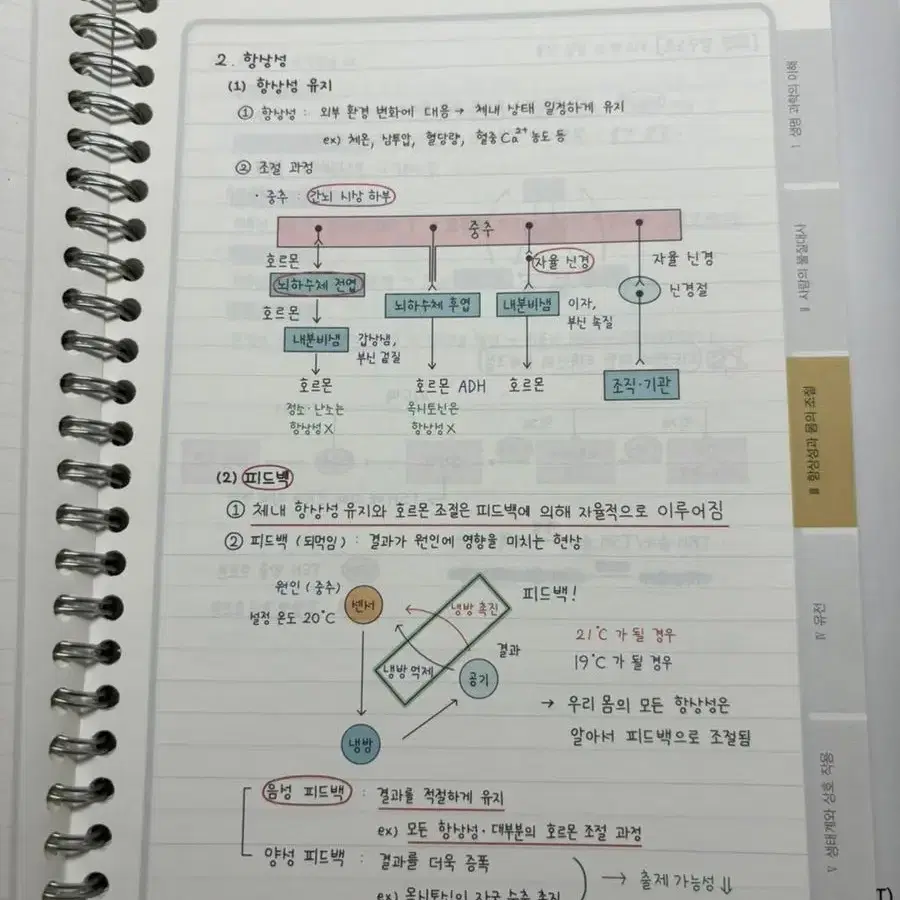 2. 항상성
(1) 항상성 유지
① 항상성 : 외부 환경 변화에 대응 → 체내 상태 일정하게 유지
ex) 체온, 삼투압, 혈당량, 혈중 Ca²⁺ 농도 등
② 조절 과정
· 중추 : 간뇌 시상 하부
중추
호르몬
뇌하수체 전엽
호르몬
내분비샘
갑상샘,
부신 겉질
호르몬
정소·난소는
항상성 X
뇌하수체 후엽
호르몬 ADH
옥시토신은
항상성 X
자율 신경
내분비샘
이자,
부신 속질
호르몬
자율 신경
신경절
조직·기관
(2) 피드백
① 체내 항상성 유지와 호르몬 조절은 피드백에 의해 자율적으로 이루어짐
② 피드백 (되먹임) : 결과가 원인에 영향을 미치는 현상
원인 (중추)
설정 온도 20°C
센서
냉방 촉진
냉방 억제
피드백!
결과
공기
냉방
21°C 가 될 경우
19°C 가 될 경우
→ 우리 몸의 모든 항상성은
알아서 피드백으로 조절됨
음성 피드백 : 결과를 적절하게 유지
ex) 모든 항상성·대부분의 호르몬 조절 과정
양성 피드백 : 결과를 더욱 증폭
ex) 옥시토신의 자궁 수축 촉진
→ 출제 가능성 ⇓
I 생명 과학의 이해
II 사람의 물질대사
III 항상성과 몸의 조절
IV 유전
V 생태계와 상호 작용